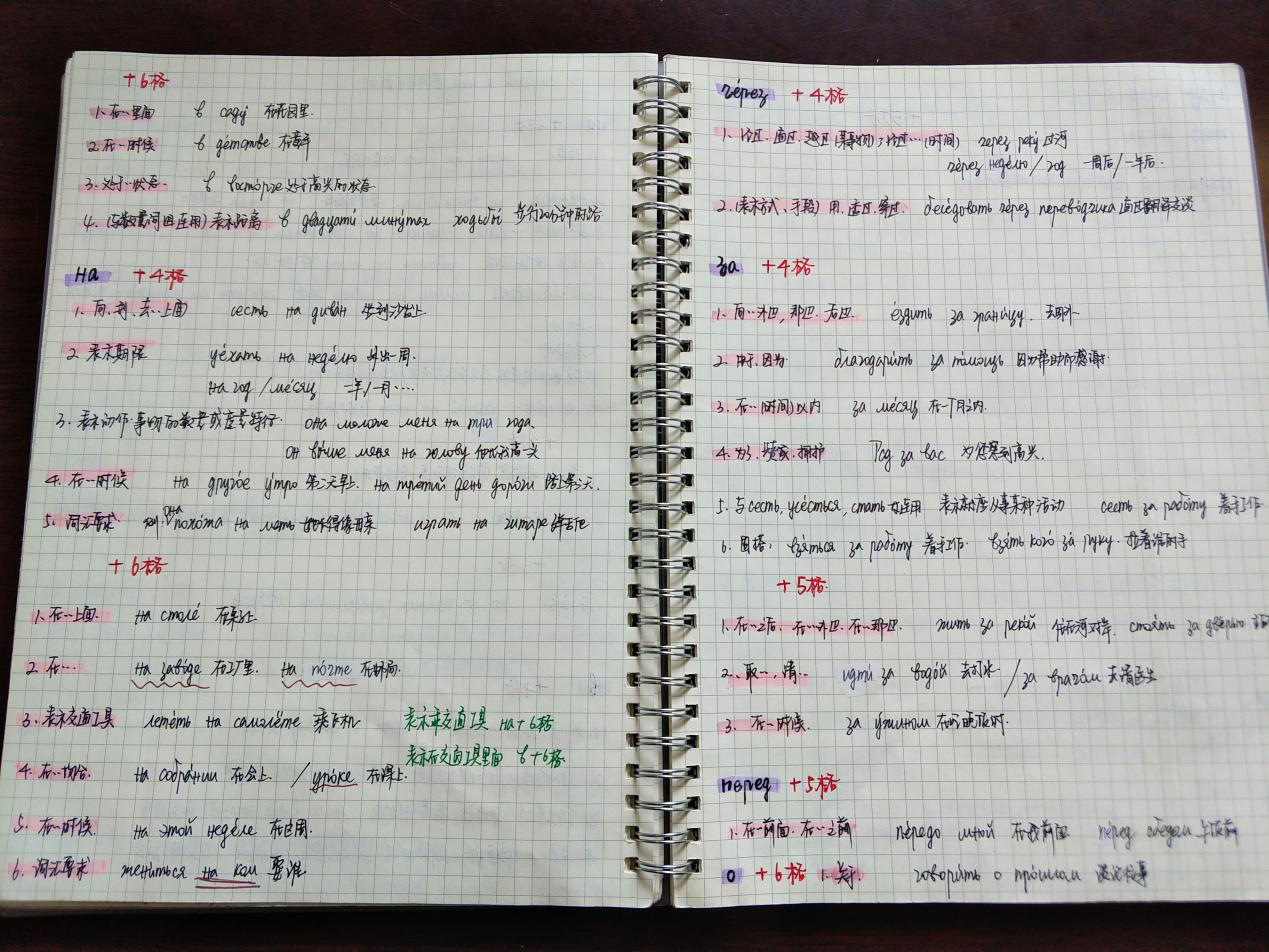 +6格
1.在…里面 в саду́ 在花园里.
2.在…时候 в де́тстве 在童年
3.处于…状态. в восто́рге 处于高兴的状态
4.(与数量词组连用)表示距离 в двадцати́ мину́тах ходьбы́ 步行20分钟的路
на +4格
1.向、到、去…上面 сесть на дива́н 坐到沙发上.
2 表示期限 уе́хать на неде́лю 外出一周.
на год /ме́сяц 一年/一月…
3.表示动作、事物的数量或度量特征. она моложе меня на три года.
он вы́ше меня на голову 他比我高一头
4.在…时候 на друго́е у́тро 第二天早上. на тре́тий день доро́ги 路上第三天.
5.词汇要求 она похо́жа на мать 她长得像母亲 играть на гитаре 弹吉他
+6格
1.在…上面. на столе́ 在桌上.
2.在… на заво́де 在工厂里. на по́чте 在邮局.
3.表示交通工具 лете́ть на самолёте 乘飞机 表示乘交通工具 на+6格
表示在交通工具里面 в+6格.
4.在…场合. на собра́нии 在会上. /уро́ке 在课上.
5.在…时候. на э́той неде́ле 在这周.
6.词汇要求 жени́ться на ком 娶谁
че́рез +4格
1.经过.通过.越过(某事物);经过…(时间) через реку́ 过河
че́рез неде́лю/год 一周后/一年后.
2.(表示方式、手段)用、通过.经过. бесе́довать че́рез перево́дчика 通过翻译交谈
за +4格
1.向…外边,那边.后边. е́здить за грани́цу. 去国外
2.由于.因为 благодари́ть за по́мощь 因为帮助而感谢.
3.在…(时间)以内 за ме́сяц 在一个月之内.
4.为了.赞成.拥护 Рад за вас 为您感到高兴.
5.与сесть, усе́сться, стать 等连用 表示着手从事某种活动 сесть за рабо́ту 着手工作
6.固搭: взя́ться за рабо́ту 着手工作. взять кого́ за́ руку. 拉着谁的手
+5格.
1.在…之后.在…外边.在…那边. жить за реко́й 住在河对岸. стоя́ть за две́рью
2.取…,请… идти́ за водо́й 去打水 /за врачо́м 去请医生
3.在…时候 за у́жином 在吃晚饭时.
перед +5格
1.在…前面.在…之前 пе́редо мной 在我前面 пе́ред обе́дом 午饭前
о +6格 1.关于 говори́ть о про́шлом 谈论往事